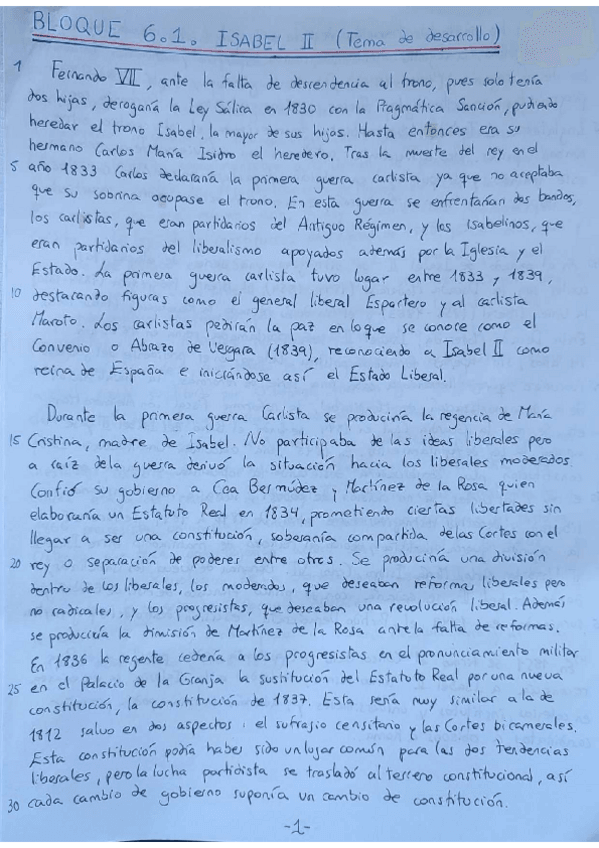 BLOQUE 6.1. ISABEL II (Tema de desarrollo)
1 Fernando VII, ante la falta de descendencia al trono, pues solo tenía
dos hijas, derogaría la Ley Sálica en 1830 con la Pragmática Sanción, pudiendo
heredar el trono Isabel, la mayor de sus hijas. Hasta entonces era su
hermano Carlos María Isidro el heredero. Tras la muerte del rey en el
5 año 1833 Carlos declararía la primera guerra carlista ya que no aceptaba
que su sobrina ocupase el trono. En esta guerra se enfrentarían dos bandos,
los carlistas, que eran partidarios del Antiguo Régimen, y los isabelinos, que
eran partidarios del liberalismo apoyados además por la Iglesia y el
Estado. La primera guerra carlista tuvo lugar entre 1833 y 1839,
10 destacando figuras como el general liberal Espartero y al carlista
Maroto. Los carlistas pedirán la paz en lo que se conoce como el
Convenio o Abrazo de Vergara (1839), reconociendo a Isabel II como
reina de España e iniciándose así el Estado Liberal.
Durante la primera guerra Carlista se produciría la regencia de María
15 Cristina, madre de Isabel. No participaba de las ideas liberales pero
a raíz de la guerra derivó la situación hacia los liberales moderados
Confió su gobierno a Cea Bermúdez y Martínez de la Rosa quien
elaboraría un Estatuto Real en 1834, prometiendo ciertas libertades sin
llegar a ser una constitución, soberanía compartida de las Cortes con el
20 rey o separación de poderes entre otros. Se produciría una división
dentro de los liberales, los moderados, que deseaban reformas liberales pero
no radicales, y los progresistas, que deseaban una revolución liberal. Además
se produciría la dimisión de Martínez de la Rosa ante la falta de reformas.
En 1836 la regente cedería a los progresistas en el pronunciamiento militar
25 en el Palacio de la Granja la sustitución del Estatuto Real por una nueva
constitución, la constitución de 1837. Esta sería muy similar a la de
1812 salvo en dos aspectos: el sufragio censitario y las Cortes bicamerales.
Esta constitución podía haber sido un lugar común para las dos tendencias
liberales, pero la lucha partidista se trasladó al terreno constitucional, así
30 cada cambio de gobierno suponía un cambio de constitución.
-1-